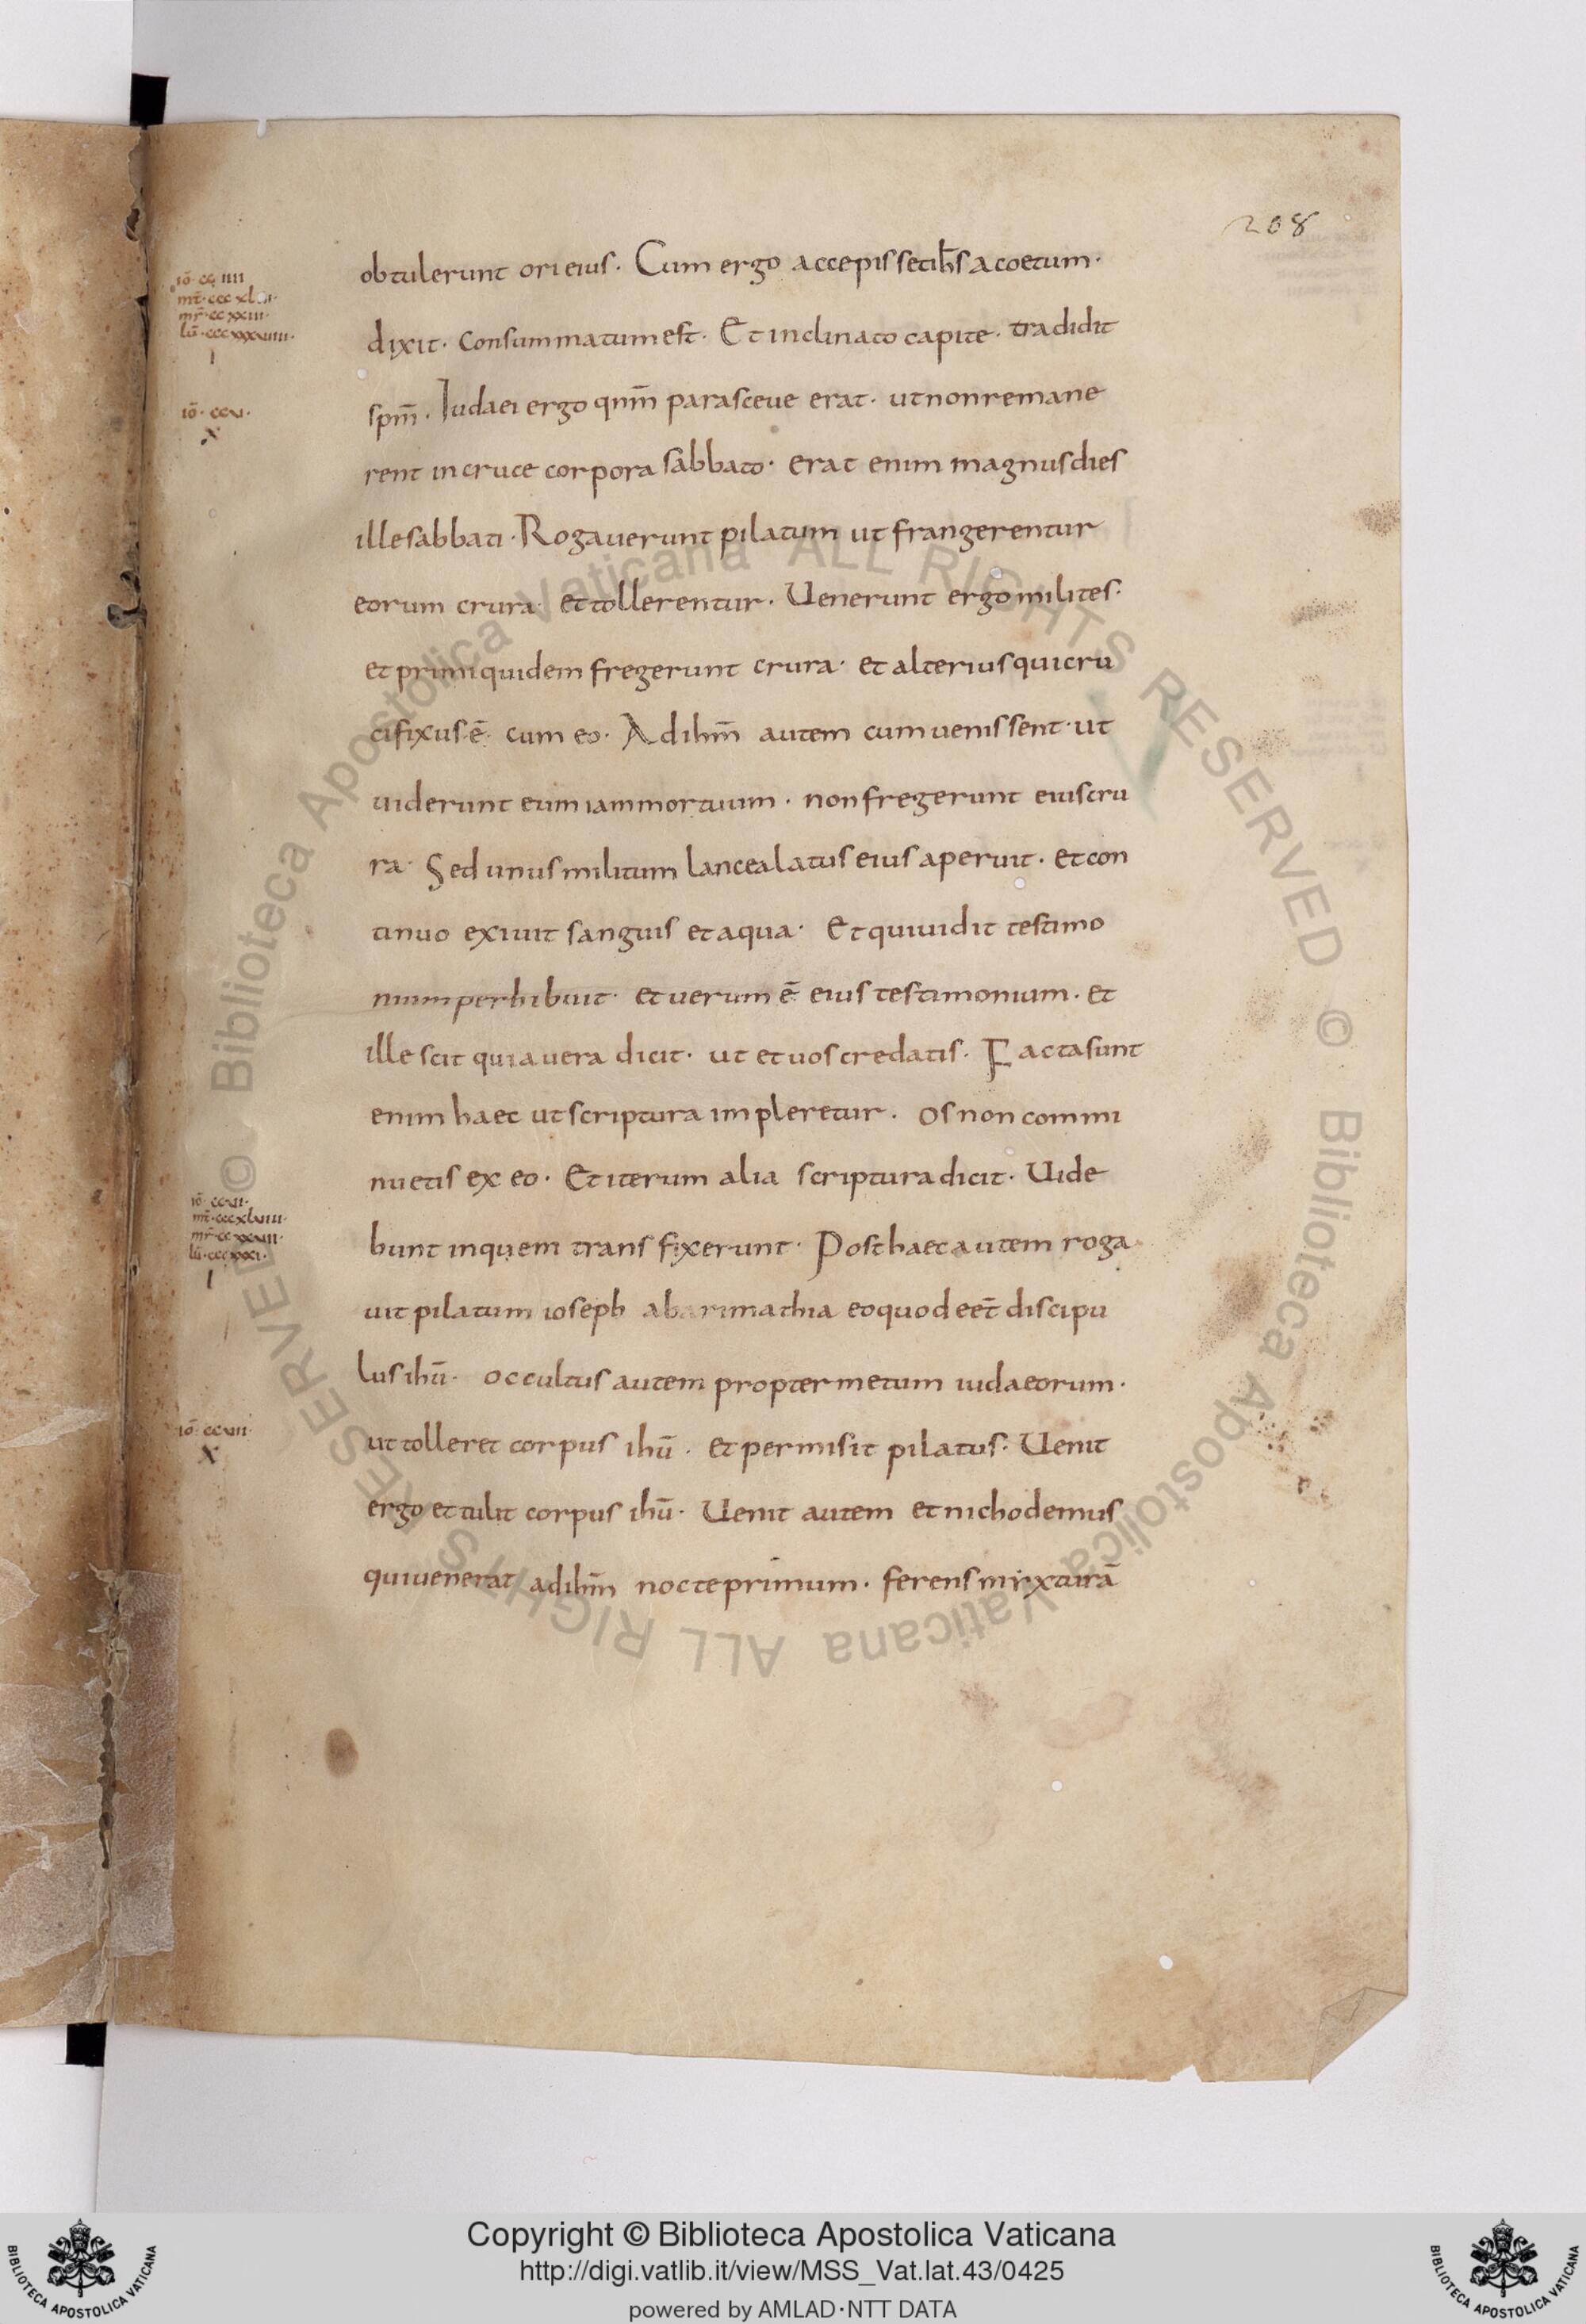 208
obtulerunt ori eius. Cum ergo accepisset ihs acoetum.
dixit. Consummatum est. Et inclinato capite. tradidit
spm̄. Iudaei ergo qnm̄ parasceue erat. ut non remane
rent in cruce corpora sabbato. erat enim magnus dies
ille sabbati. Rogauerunt pilatum ut frangerentur
eorum crura. et tollerentur. Uenerunt ergo milites.
et primi quidem fregerunt crura. et alterius qui cru
cifixus ē cum eo. Ad ihm̄ autem cum uenissent. ut
uiderunt eum iam mortuum. non fregerunt eius cru
ra. Sed unus militum lancea latus eius aperuit. et con
tinuo exiuit sanguis et aqua. Et qui uidit testimo
nium perhibuit. et uerum ē eius testimonium. et
ille scit quia uera dicit. ut et uos credatis. Facta sunt
enim haec ut scriptura impleretur. os non commi
nuetis ex eo. Et iterum alia scriptura dicit. Uide
bunt in quem transfixerunt. Post haec autem roga
uit pilatum ioseph ab arimathia eo quod eēt discipu
lus ihū. occultus autem propter metum iudaeorum.
ut tolleret corpus ihū. et permisit pilatus. Uenit
ergo et tulit corpus ihū. Uenit autem et nichodemus
qui uenerat ad ihm̄ nocte primum. ferens mirxturā
iō. cc. iiii
mr̄. cc xxiii.
lū. ccc xxxviiii.
I
iō. ccv.
X
iō. ccvi.
mt̄. cccxlviii.
mr̄. cc xxvii.
lū. cccxxxi.
I
iō. ccvii.
X
© Biblioteca Apostolica Vaticana ALL RIGHTS RESERVED © Biblioteca Apostolica Vaticana ALL RIGHTS RESERVED
Copyright © Biblioteca Apostolica Vaticana
http://digi.vatlib.it/view/MSS_Vat.lat.43/0425
powered by AMLAD·NTT DATA
BIBLIOTECA APOSTOLICA VATICANA
BIBLIOTECA APOSTOLICA VATICANA